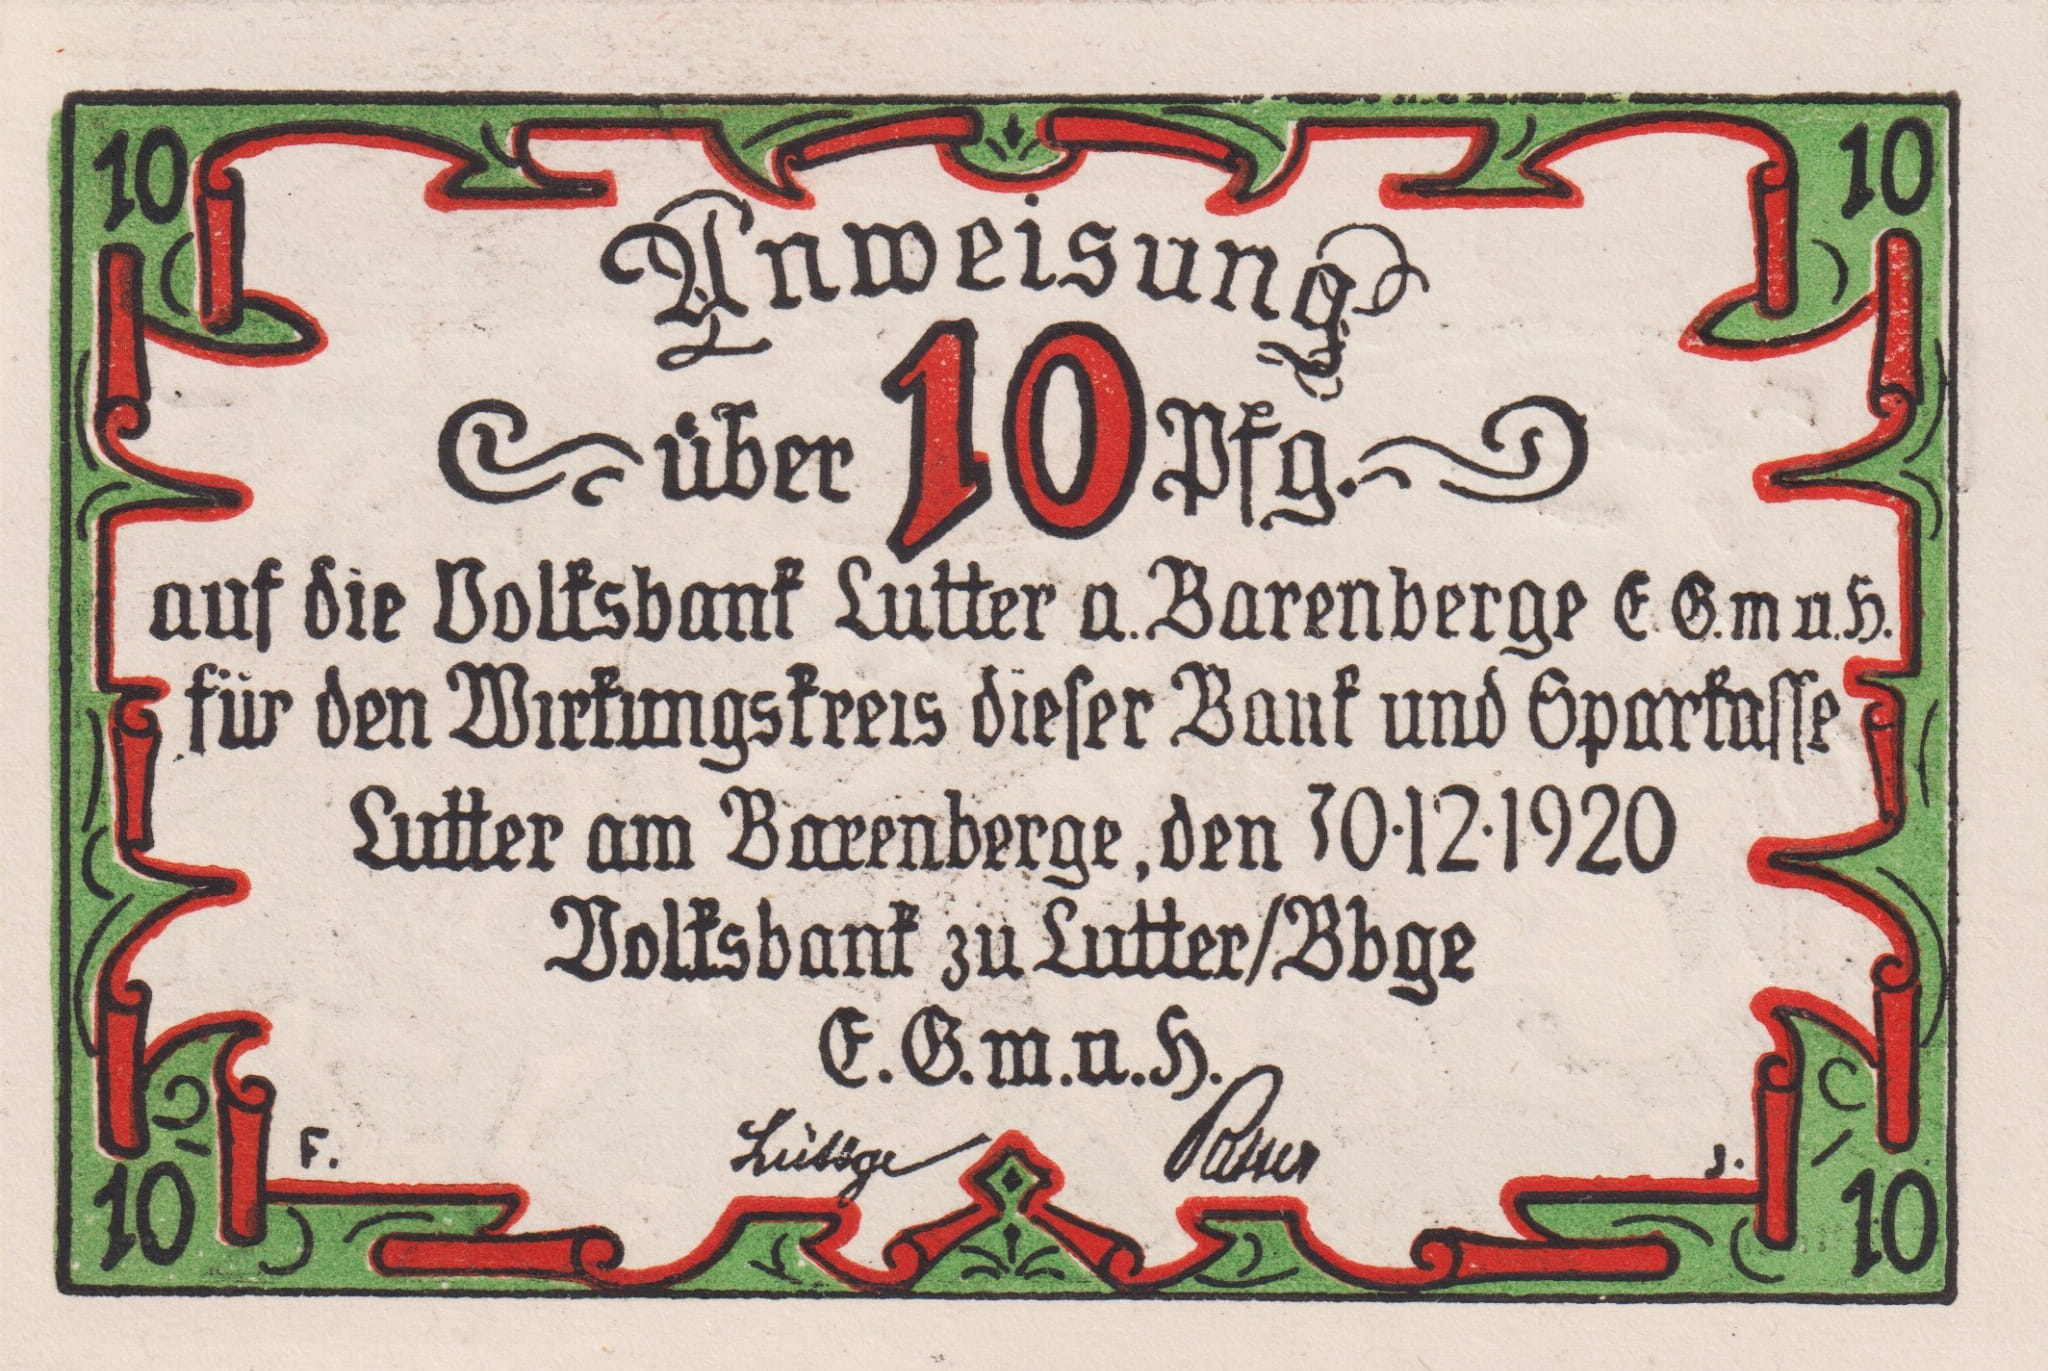 10 10
Anweisung
über 10 Pfg.
auf die Volksbank Lutter a. Barenberge E. G. m u. H.
für den Wirkungskreis dieser Bank und Sparkasse
Lutter am Barenberge, den 30·12·1920
Volksbank zu Lutter/Bbge
E. G. m. u. H.
F. Lüttge J.
10 10